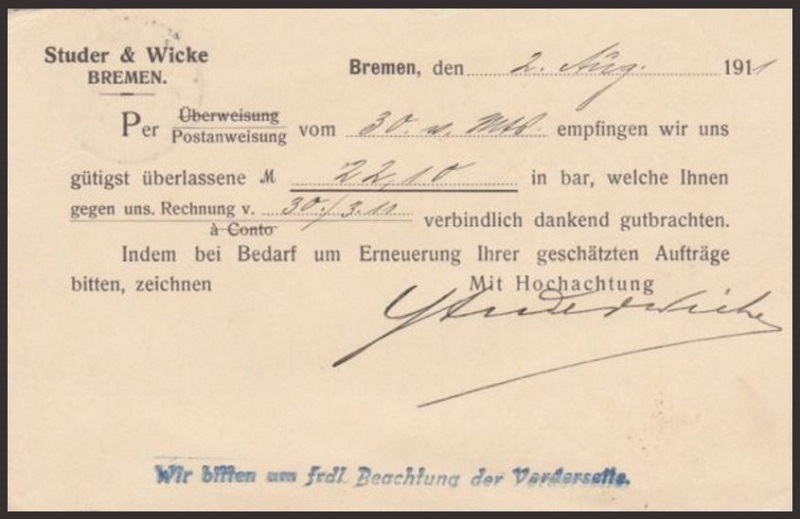 Studer & Wicke
BREMEN.
Bremen, den 2. Aug. 1911
Per Überweisung
Postanweisung vom 30. v. Mts. empfingen wir uns
gütigst überlassene M 22,10 in bar, welche Ihnen
gegen uns. Rechnung v. 30./3.11
à Conto verbindlich dankend gutbrachten.
Indem bei Bedarf um Erneuerung Ihrer geschätzten Aufträge
bitten, zeichnen Mit Hochachtung
Studer & Wicke
Wir bitten um frdl. Beachtung der Vorderseite.